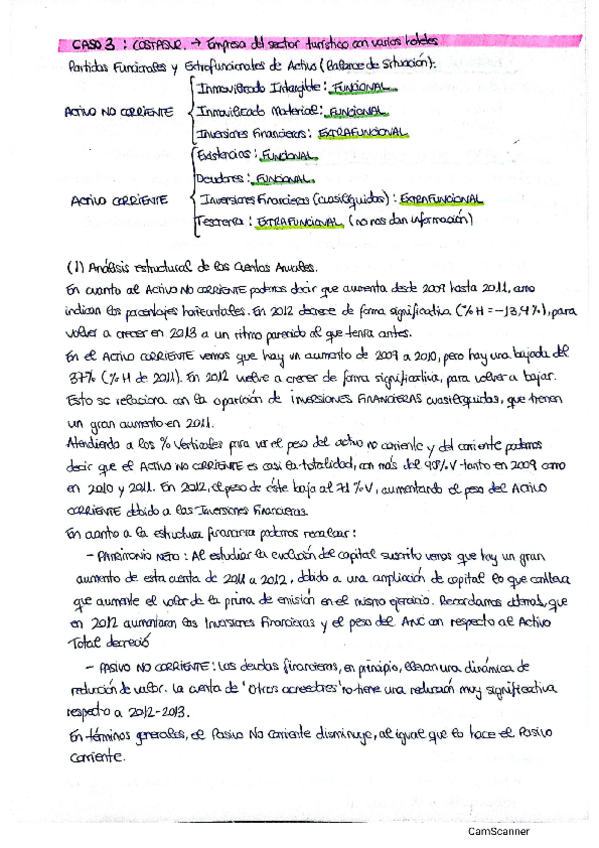 CASO 3 : COSTASUR. → Empresa del sector turístico con varios hoteles
Partidas Funcionales y Extrafuncionales de Activo (Balance de Situación):
Inmovilizado Intangible : FUNCIONAL
ACTIVO NO CORRIENTE Inmovilizado Material : FUNCIONAL
Inversiones Financieras : EXTRAFUNCIONAL
Existencias : FUNCIONAL
Deudores : FUNCIONAL
ACTIVO CORRIENTE Inversiones Financieras (cuasilíquidas) : EXTRAFUNCIONAL
Tesorería : EXTRAFUNCIONAL (no nos dan información)
(1) Análisis estructural de las Cuentas Anuales.
En cuanto al ACTIVO NO CORRIENTE podemos decir que aumenta desde 2009 hasta 2011, como
indican los porcentajes horizontales. En 2012 decrece de forma significativa (% H = -13,4%), para
volver a crecer en 2013 a un ritmo parecido al que tenía antes.
En el ACTIVO CORRIENTE vemos que hay un aumento de 2009 a 2010, pero hay una bajada del
37% (% H de 2011). En 2012 vuelve a crecer de forma significativa, para volver a bajar.
Esto se relaciona con la aparición de INVERSIONES FINANCIERAS cuasilíquidas, que tienen
un gran aumento en 2011.
Atendiendo a los % Verticales para ver el peso del activo no corriente y del corriente podemos
decir que el ACTIVO NO CORRIENTE es casi la totalidad, con más del 90% V tanto en 2009 como
en 2010 y 2011. En 2012, el peso de éste baja al 71 % V, aumentando el peso del ACTIVO
CORRIENTE debido a las Inversiones Financieras.
En cuanto a la estructura financiera podemos recalcar :
- PATRIMONIO NETO : Al estudiar la evolución del capital suscrito vemos que hay un gran
aumento de esta cuenta de 2011 a 2012, debido a una ampliación de capital lo que conlleva
que aumente el valor de la prima de emisión en el mismo ejercicio. Recordamos además, que
en 2012 aumentaron las Inversiones Financieras y el peso del ANC con respecto al Activo
Total decreció
- PASIVO NO CORRIENTE : Las deudas financieras, en principio, llevan una dinámica de
reducción de valor. La cuenta de "Otros acreedores" no tiene una reducción muy significativa
respecto a 2012-2013.
En términos generales, el Pasivo No Corriente disminuye, al igual que lo hace el Pasivo
Corriente.
CamScanner